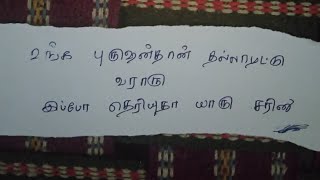 உங்க புருஷன்தான் நல்லாமட்டு
வராரு
இப்போ தெரியுதா யாரு சரினு